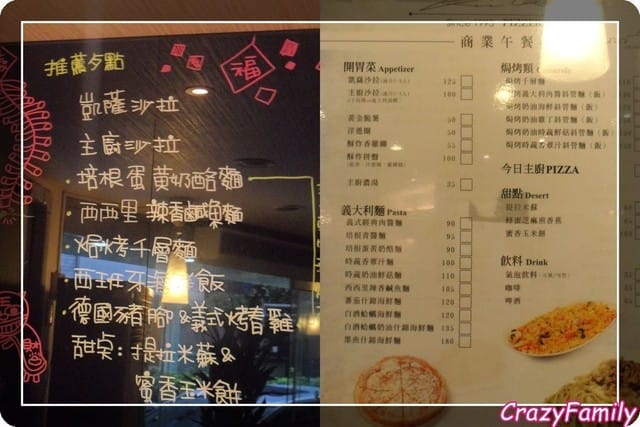 推薦夕點
福
凱薩沙拉
主廚沙拉
·培根蛋黃奶酪麵
·西西里辣香鹹魚麵
·焗烤千層麵
·西班牙海鮮飯
·德國豬腳&義式烤春雞
甜點:提拉米蘇&
蜜香玉米餅
商業午餐
開胃菜 Appetizer
凱薩沙拉 125
主廚沙拉 100
黃金脆薯 50
洋蔥圈 50
酥炸香雞柳 55
酥炸拼盤 100
主廚濃湯 35
義大利麵 Pasta
義式經典肉醬麵 90
培根青醬麵 95
培根蛋黃奶醋麵 90
時蔬香草汁麵 100
時蔬奶油鮮菇麵 110
西西里辣香鹹魚麵 105
蕃茄什錦海鮮麵 120
白酒蛤蠣海鮮麵 120
白酒蛤蠣奶油什錦海鮮麵 135
墨魚什錦海鮮麵 180
焗烤類
焗烤千層麵
焗烤義大利肉醬斜管麵(飯)
焗烤奶油海鮮斜管麵(飯)
焗烤奶油雞丁斜管麵(飯)
焗烤奶油時蔬鮮菇斜管麵(飯)
焗烤時蔬香草汁斜管麵(飯)
今日主廚PIZZA
甜點 Desert
提拉米蘇
蜂蜜芝麻煎香蕉
蜜香玉米餅
飲料 Drink
氣泡飲料
咖啡
啤酒
CrazyFamily